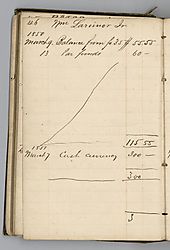 26 Wm Larimor Jr
1850
March 9. Balance from fo 35 $ 55.55
13 Par funds 60 -
115 55
1850
March 9 Cash currency 300 -
3 00
3